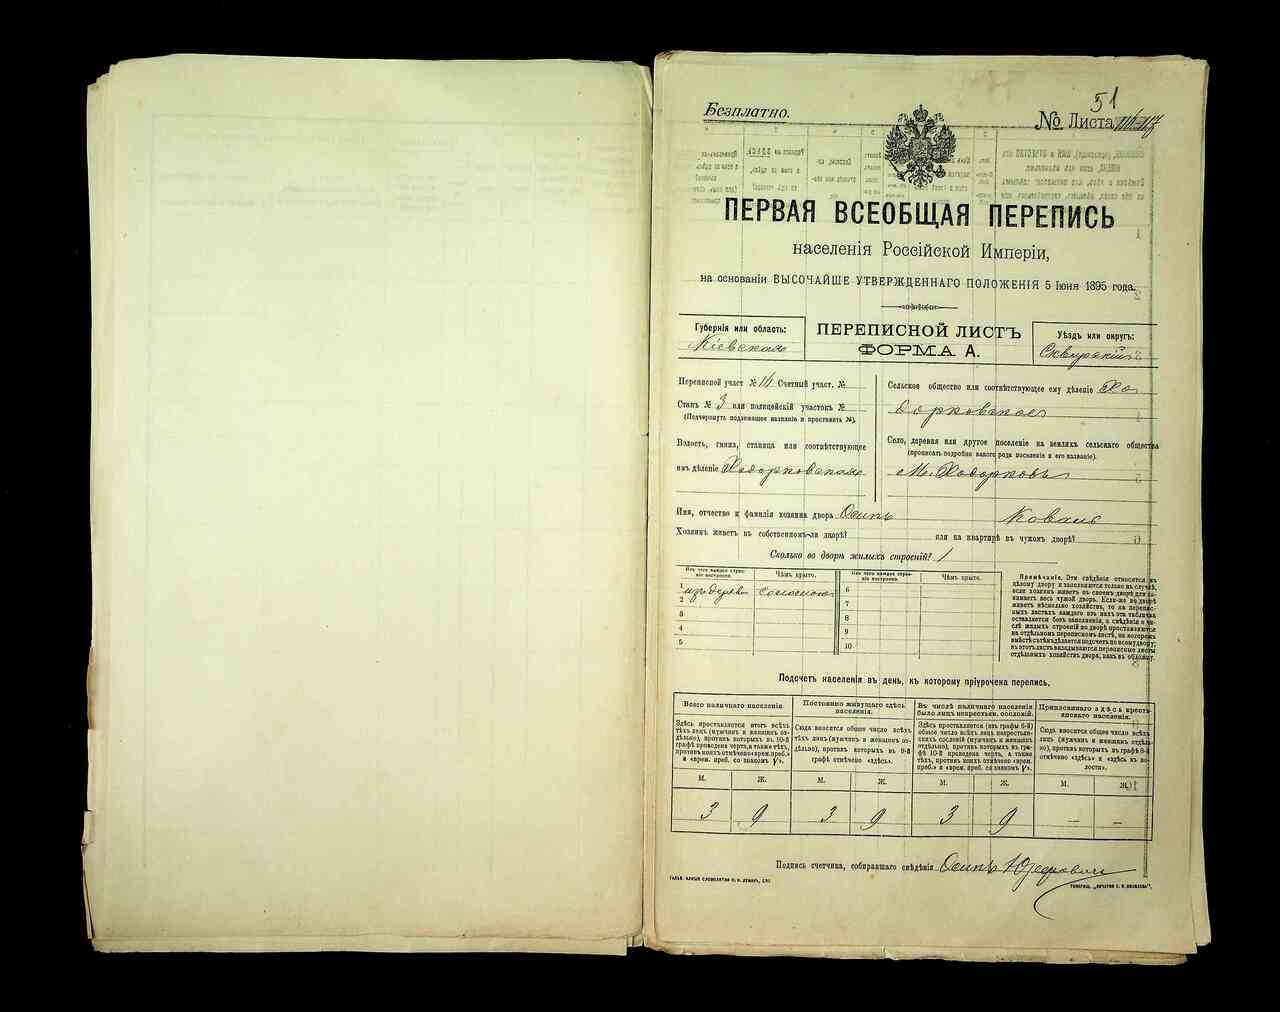 51
Безплатно.
№ Листа
ПЕРВАЯ ВСЕОБЩАЯ ПЕРЕПИСЬ
населенія Россійской Имперіи,
на основаніи ВЫСОЧАЙШЕ УТВЕРЖДЕННАГО ПОЛОЖЕНІЯ 5 Іюня 1895 года.
Губернія или область:
Кіевская
ПЕРЕПИСНОЙ ЛИСТЪ
ФОРМА А.
Уѣздъ или округъ:
Сквирскій
Переписной участ. № 16 Счетный участ. №
Станъ № 3 или полицейскій участокъ №
(Подчеркнуть подлежащее названіе и проставить №).
Волость, гмина, станица или соотвѣтствующее
имъ дѣленіе Ходорковская
Сельское общество или соотвѣтствующее ему дѣленіе Хо
дорковское
Село, деревня или другое поселеніе на земляхъ сельскаго общества
(прописать подробно какого рода поселеніе и его названіе).
М. Ходорковъ
Имя, отчество и фамилія хозяина двора Осипъ Коваль
Хозяинъ живетъ въ собственномъ-ли дворѣ? или на квартирѣ въ чужомъ дворѣ?
Сколько во дворѣ жилыхъ строеній? 1
Изъ чего каждое строеніе построено.
Чѣмъ крыто.
Изъ чего каждое строеніе построено.
Чѣмъ крыто.
1 изъ дерева соломою
2
3
4
5
6
7
8
9
10
Примѣчаніе. Эти свѣдѣнія относятся къ
цѣлому двору и заполняются только въ случаѣ,
если хозяинъ живетъ въ своемъ дворѣ или занимаетъ весь чужой дворъ. Если-же во дворѣ
живетъ нѣсколько хозяйствъ, то на переписныхъ листахъ каждаго изъ нихъ эта табличка
оставляется безъ заполненія, а свѣдѣнія о числѣ жилыхъ строеній во дворѣ проставляются
на отдѣльномъ переписномъ листѣ, на которомъ
вмѣстѣ съ тѣмъ дѣлается подсчетъ по всему двору;
въ этотъ листъ вкладываются переписные листы
отдѣльныхъ хозяйствъ двора, какъ въ обложку.
Подсчетъ населенія въ день, къ которому пріурочена перепись.
Всего наличнаго населенія.
Постоянно живущаго здѣсь
населенія.
Въ числѣ наличнаго населенія
было лицъ некрестьян. сословій.
Приписаннаго здѣсь крестьянскаго населенія.
Здѣсь проставляется итогъ всѣхъ
тѣхъ лицъ (мужчинъ и женщинъ отдѣльно), противъ которыхъ въ 10-й
графѣ проведена черта, а также тѣхъ,
противъ коихъ отмѣчено «врем. преб.»
и «врем. преб. со знакомъ V».
Сюда вносится общее число всѣхъ
тѣхъ лицъ (мужчинъ и женщинъ отдѣльно), противъ которыхъ въ 9-й
графѣ отмѣчено «здѣсь».
Здѣсь проставляется (въ графы 6-й)
общее число всѣхъ лицъ некрестьянскихъ сословій (мужчинъ и женщинъ
отдѣльно), противъ которыхъ въ графѣ 10-й проведена черта, а также
тѣхъ, противъ коихъ отмѣчено «врем.
преб.» и «врем. преб. со знакомъ V».
Сюда вносится общее число всѣхъ
лицъ (мужчинъ и женщинъ отдѣльно), противъ которыхъ въ графѣ 8-й
отмѣчено «здѣсь» и «здѣсь въ волости».
М. Ж. М. Ж. М. Ж. М. Ж.
3 9 3 9 3 9 – –
Подпись счетчика, собиравшаго свѣдѣнія Осипъ